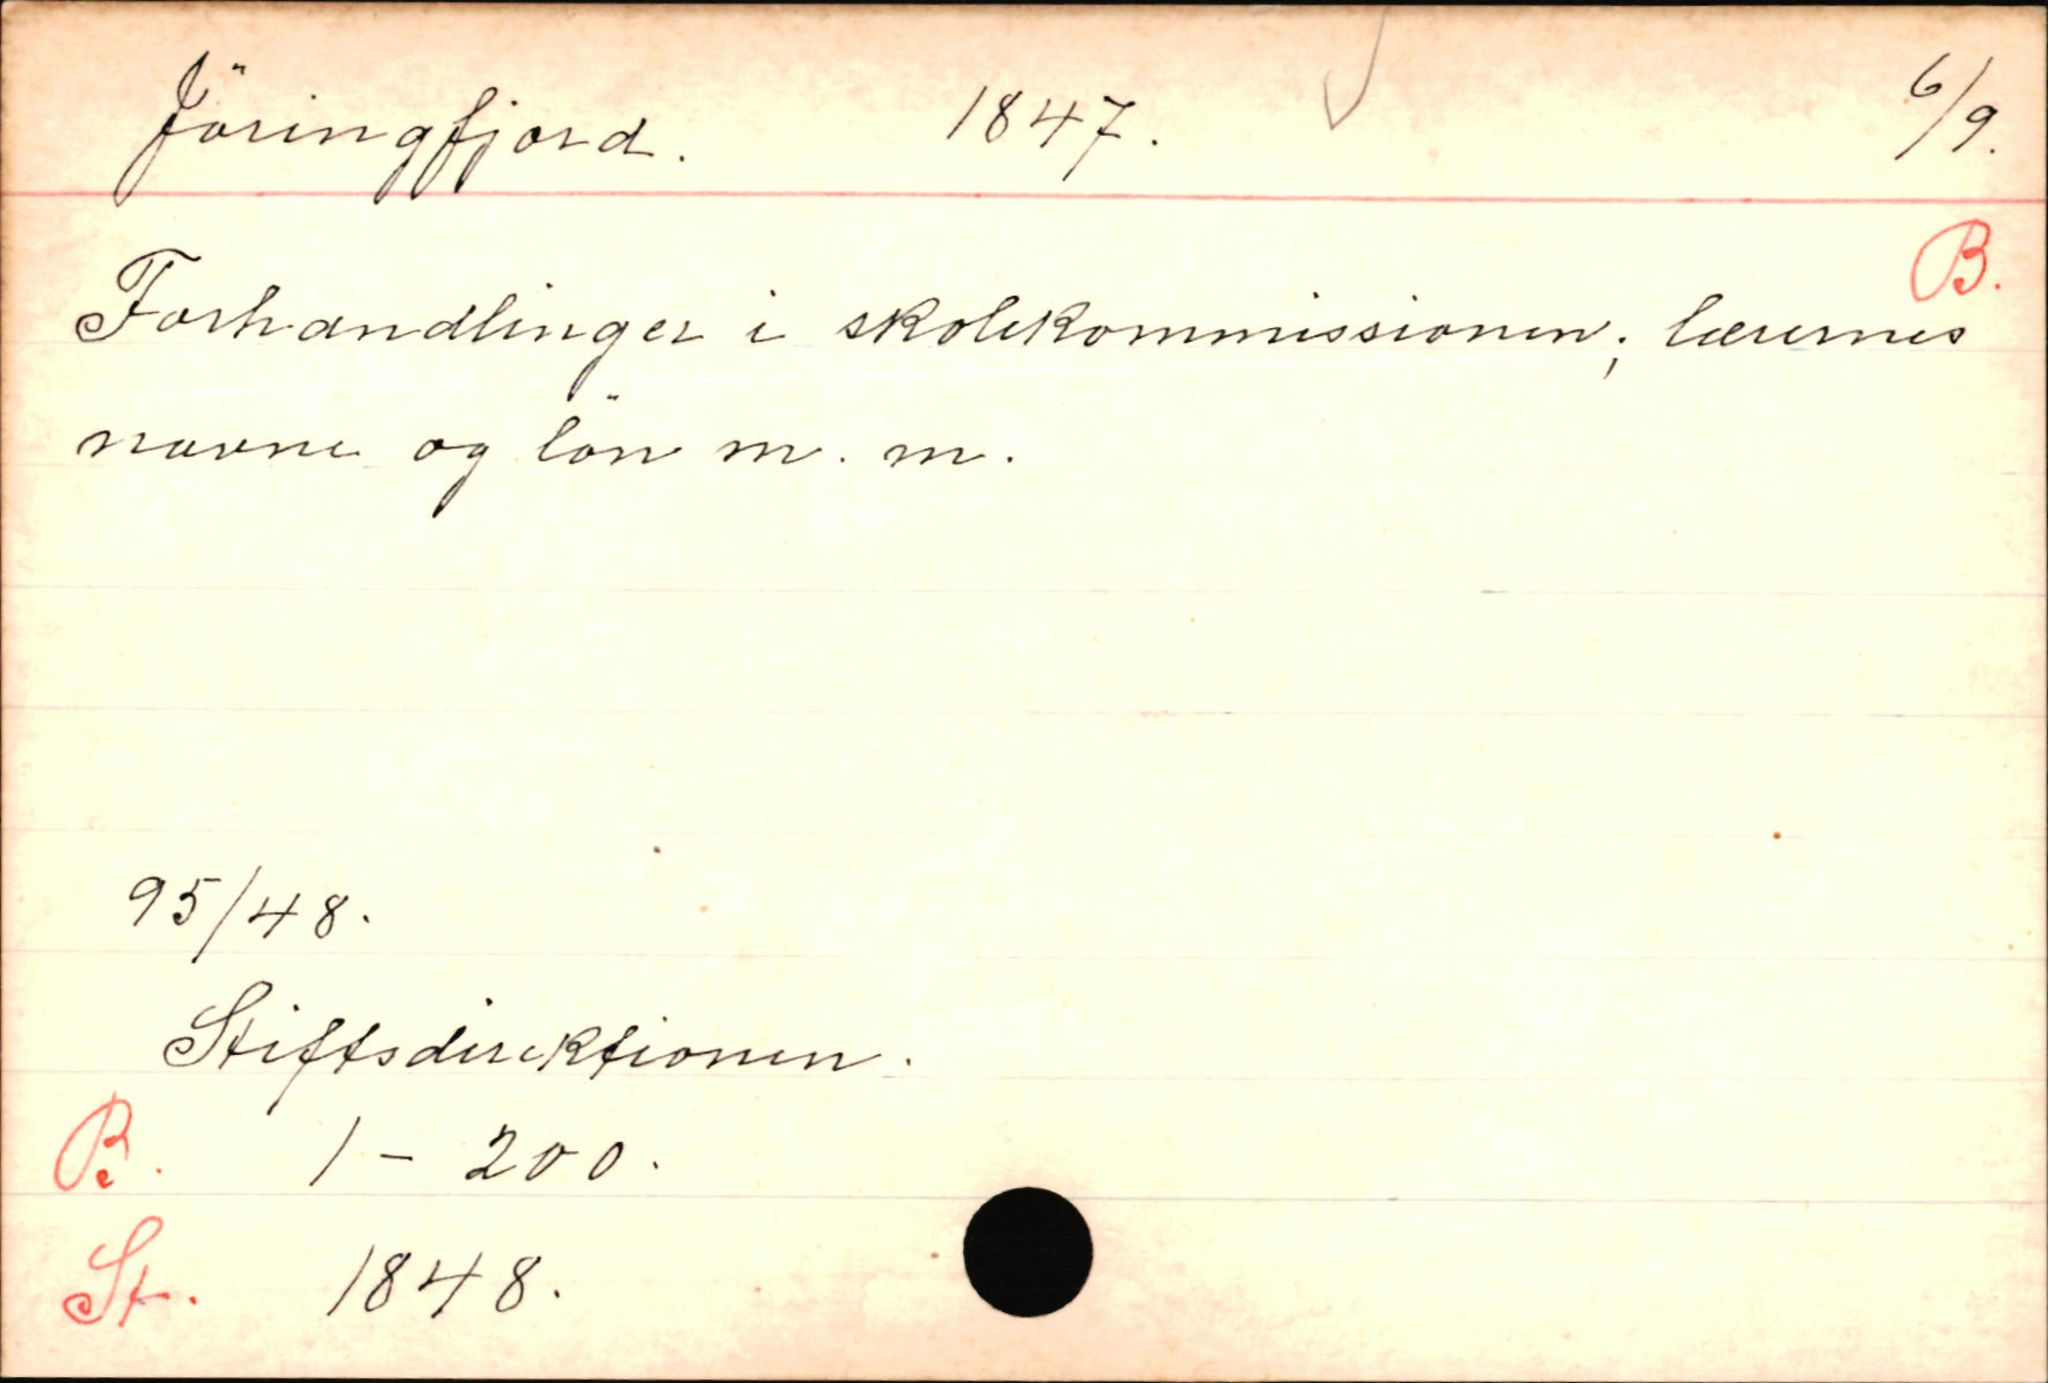 Jöringfjord. 1847. 6/9.
B.
Forhandlinger i skolekommissionen; lærernes
navne og lön m. m.
95/48.
Stiftsdirektionen.
B. 1 - 200.
St. 1848.